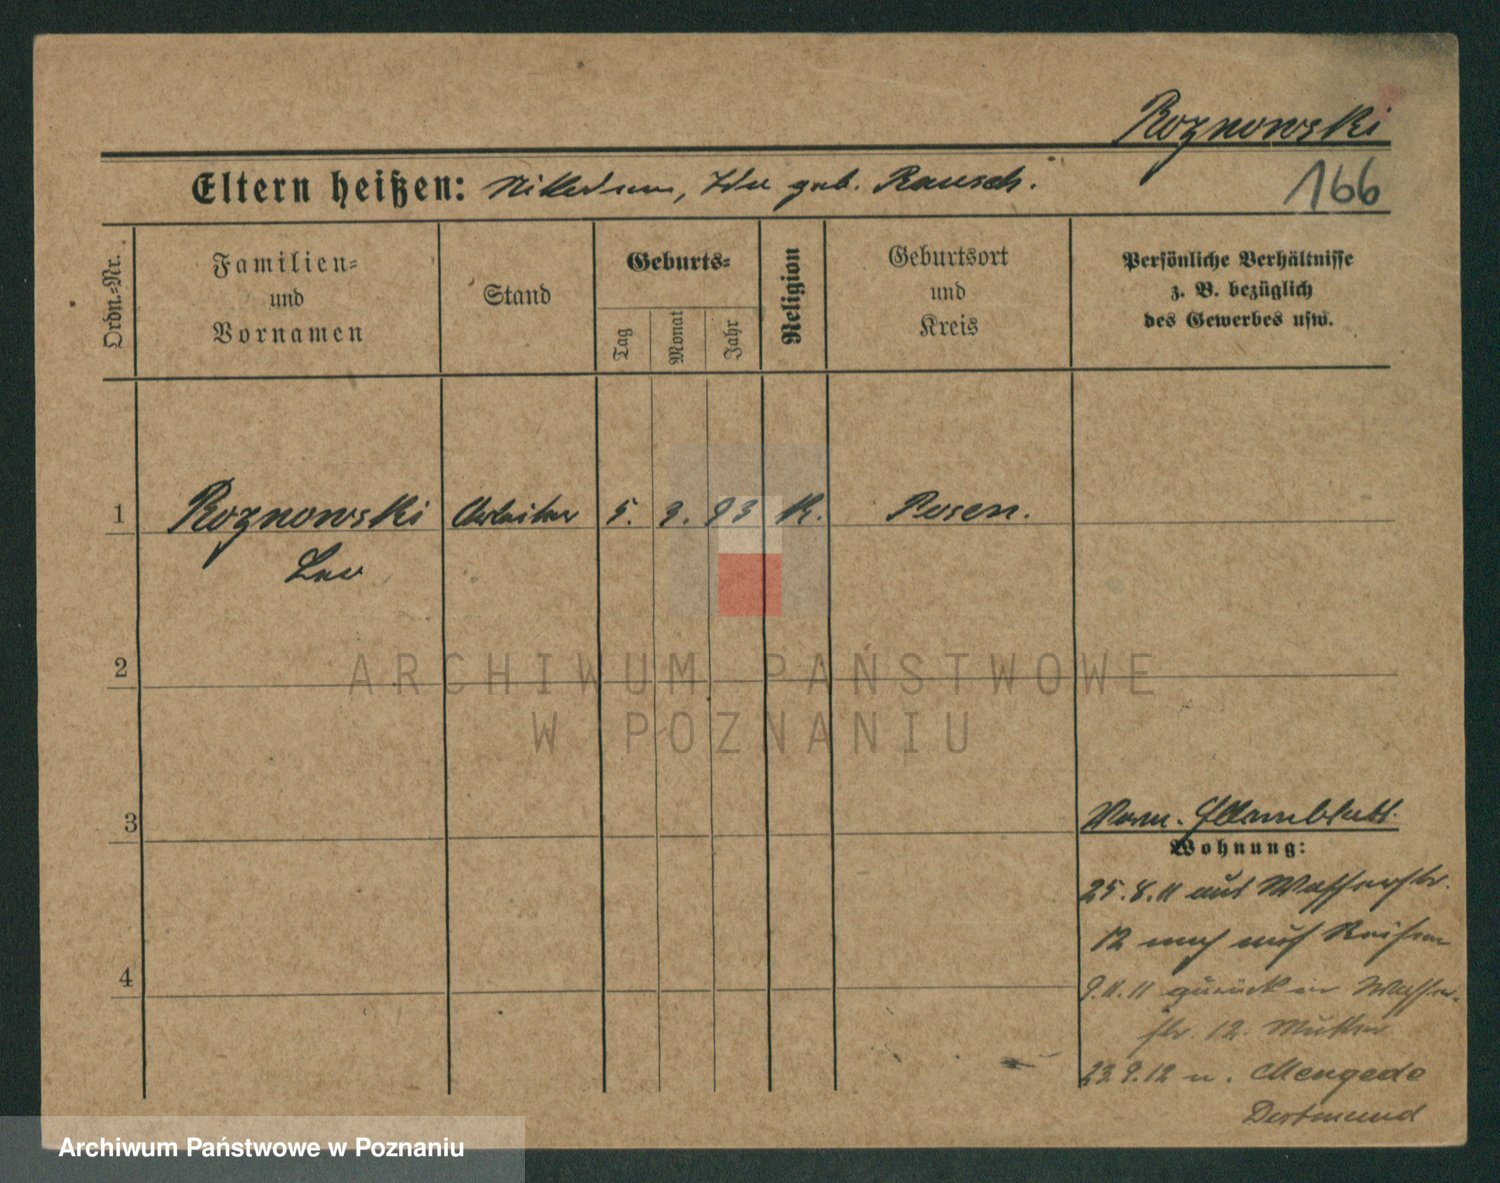 Roznowski
166
Eltern heißen: Nikodem, Ida geb. Rausch.
Ordn.-Nr.
Familien-
und
Vornamen
Stand
Geburts-
Tag
Monat
Jahr
Religion
Geburtsort
und
Kreis
Persönliche Verhältnisse
z. B. bezüglich
des Gewerbes usw.
1 Roznowski Arbeiter 5. 9. 93 K. Posen.
Leo
2
3
4
Wohnung:
25.8.11 aus Wasserstr.
12 nach auf Reisen
9.11.11 zurück in Wasser-
str. 12. Mutter
23.9.12 n. Mengede
Dortmund
ARCHIWUM PAŃSTWOWE
W POZNANIU
Archiwum Państwowe w Poznaniu